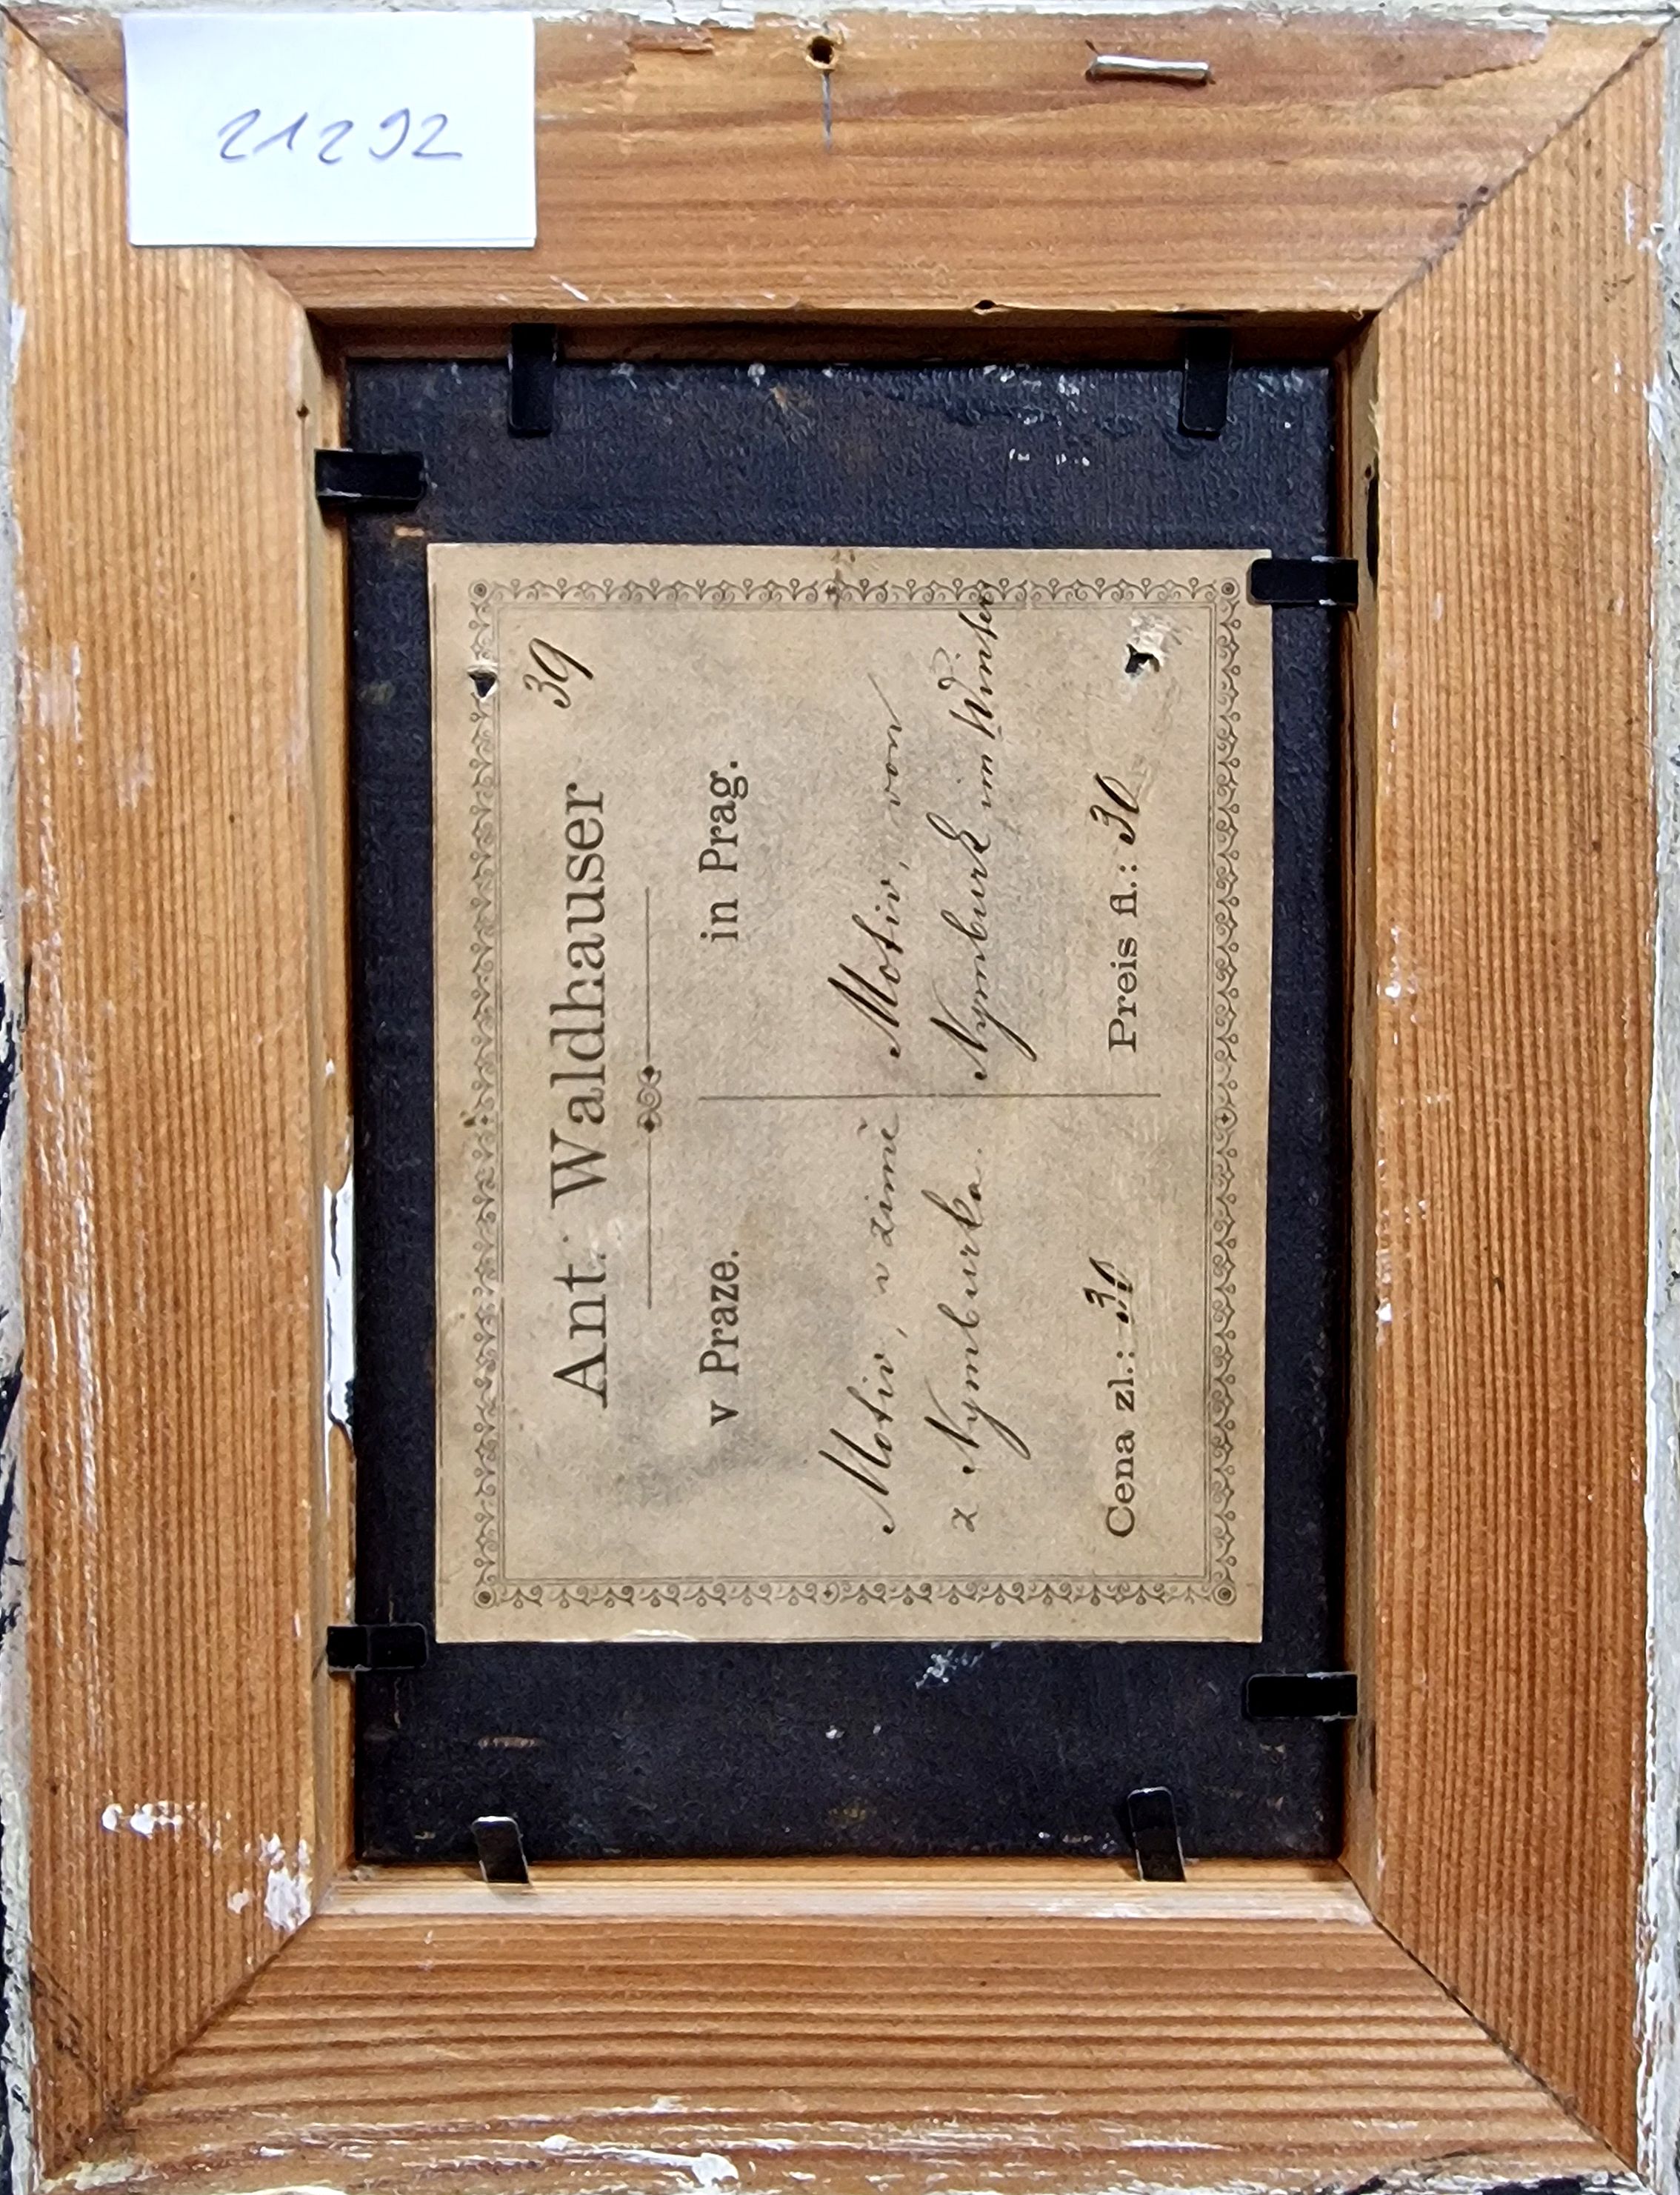 21292
Ant. Waldhauser 39
v Praze.
Motiv, v zimě
z Nymburka.
Cena zl.: 30
in Prag.
Motiv, von
Nymburk im Winter
Preis fl.: 30